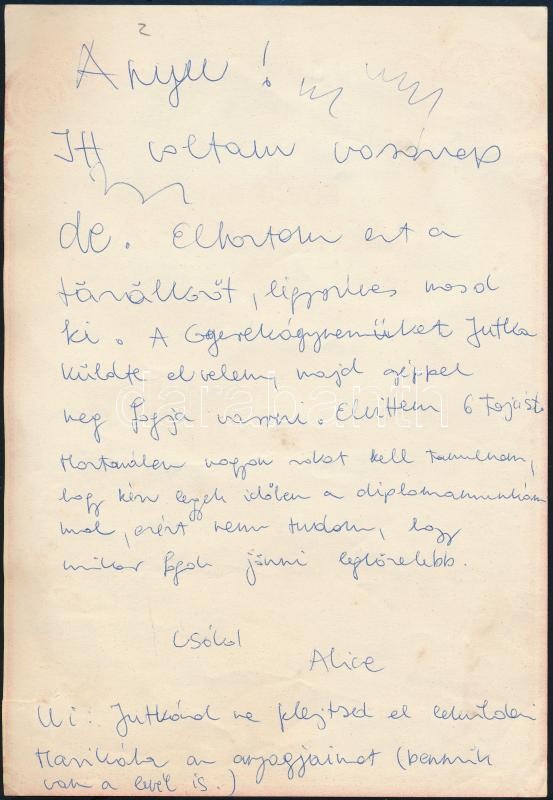 Anyu!
Itt voltam vasárnap
de. Elhoztam ezt a
törülközőt, légyszíves mosd
ki. A Gyerekágyneműket Jutka
küldte el velem, majd géppel
meg fogja varrni. Elvittem 6 tojást.
Mostanában nagyon sokat kell tanulnom,
hogy kész legyek időben a diplomamunkám
mal, ezért nem tudom, hogy
mikor fogok jönni legközelebb.
Csókol
Alice
Ui: Jutkánál ne felejtsd el elküldeni
Marikába az anyagjaimat (bennük
van a levél is.)
darabanth